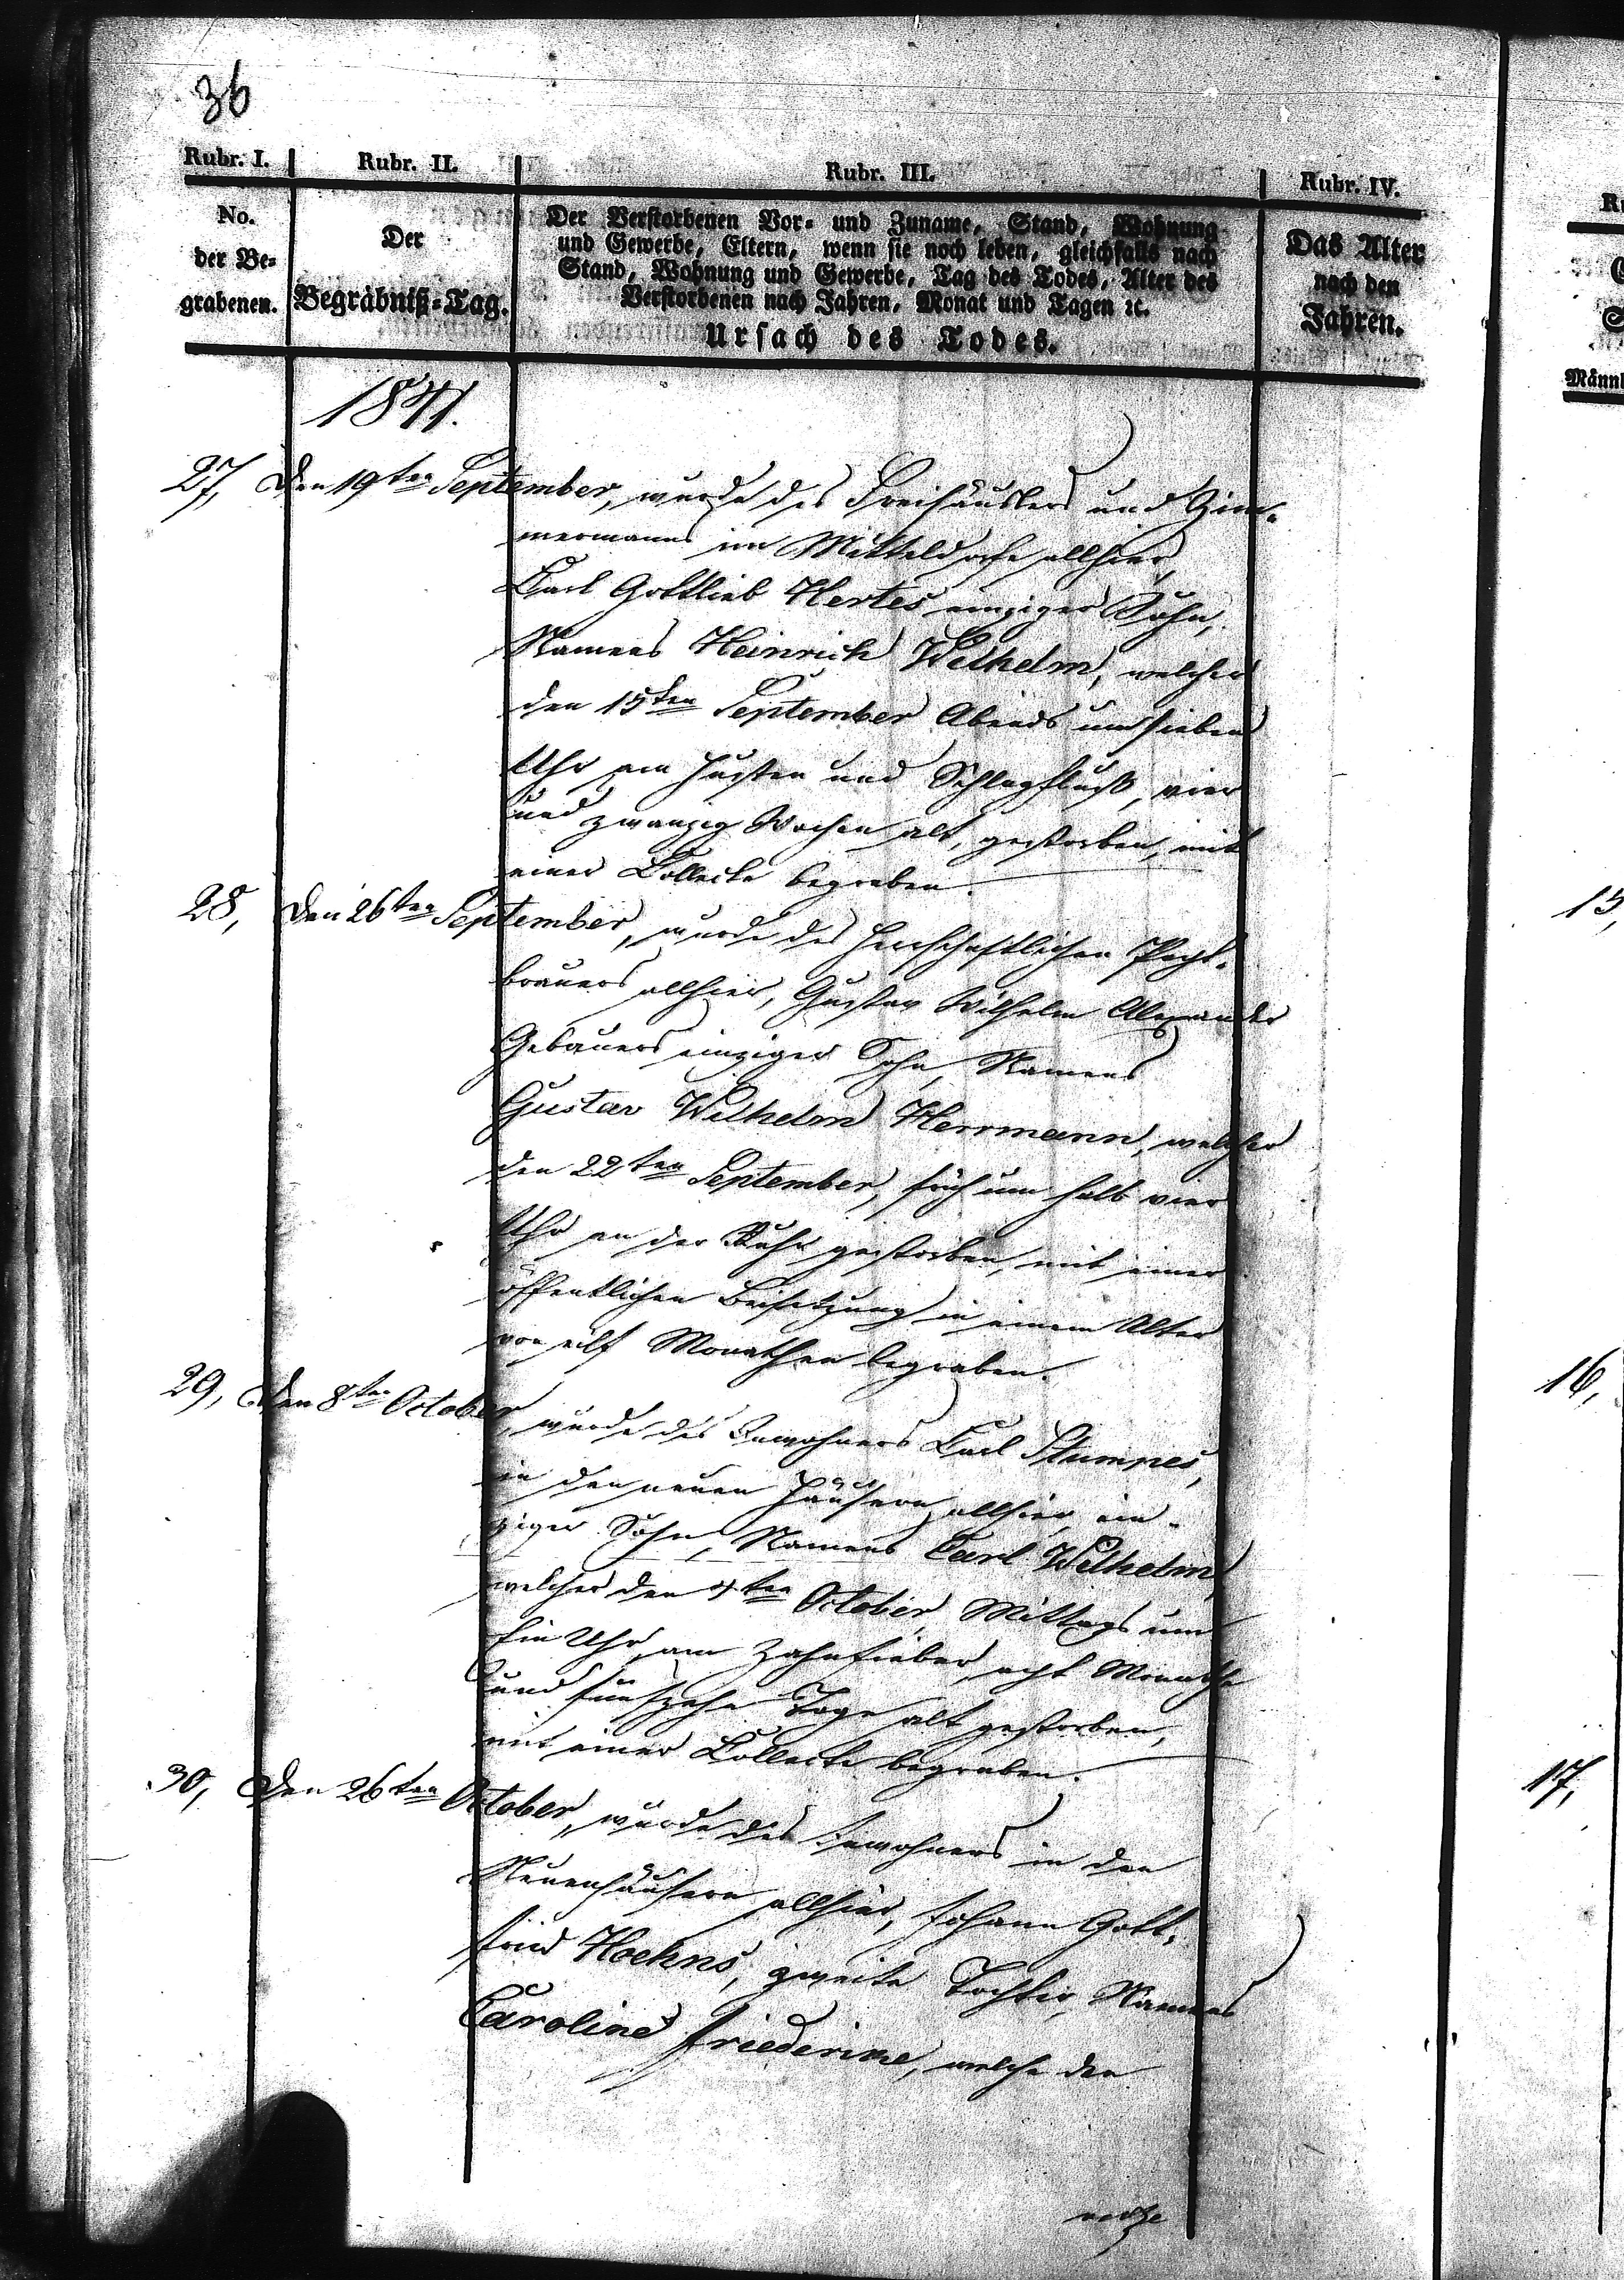 36
Rubr. I. Rubr. II. Rubr. III. Rubr. IV.
No.
der Be-
grabenen.
Der
Begräbniß-Tag.
Der Verstorbenen Vor- und Zuname, Stand, Wohnung
und Gewerbe, Eltern, wenn sie noch leben, gleichfalls nach
Stand, Wohnung und Gewerbe, Tag des Todes, Alter des
Verstorbenen nach Jahren, Monat und Tagen ꝛc.
Ursach des Todes.
Das Alter
nach den
Jahren.
Männl
1841.
27, Den 19ten September, wurde des Freihäuslers und Zim-
mermanns im Mitteldorfe allhier,
Carl Gottlieb Hertes einziger Sohn,
Namens Heinrich Wilhelm, welcher
den 15ten September Abends um sieben
Uhr am Husten und Schlagfluß, vier
und zwanzig Wochen alt, gestorben, mit
einer Collecte begraben.
28, Den 26ten September, wurde des herrschaftlichen Pacht-
brauers allhier, Gustav Wilhelm Alexander
Gebauers einziger Sohn, Namens
Gustav Wilhelm Herrmann, welcher
den 22ten September, früh um halb vier
Uhr an der Ruhr gestorben, mit einer
öffentlichen Beisetzung in einem Alter
von eilf Monathen begraben.
29, Den 8ten October, wurde des Inwohners Carl Stumpes,
in den neuen Häusern allhier, ein-
ziger Sohn, Namens Carl Wilhelm,
welcher den 4ten October, Mittags um
Ein Uhr, am Zahnfieber, acht Monathe
und fünfzehn Tage alt gestorben,
mit einer Collecte begraben.
30, Den 26ten October, wurde des Inwohners in den
Neuenhäusern allhier, Johann Gott-
fried Hoehns, zweite Tochter, Namens
Caroline Friederike, welche den
15,
16,
17,